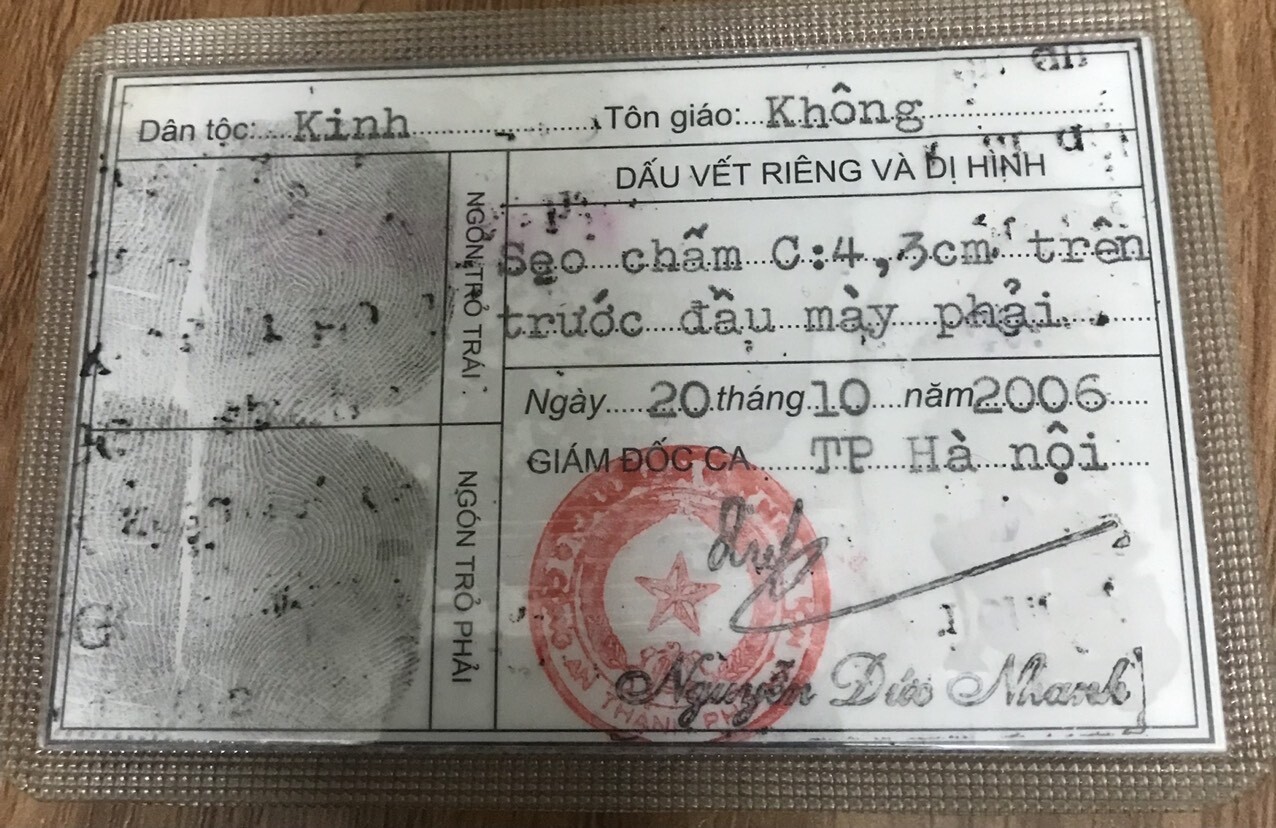 Dân tộc: Kinh Tôn giáo: Không
DẤU VẾT RIÊNG VÀ DỊ HÌNH
Sẹo chấm C:4,3cm trên
trước đầu mày phải.
NGÓN TRỎ TRÁI
NGÓN TRỎ PHẢI
Ngày 20 tháng 10 năm 2006
GIÁM ĐỐC CA TP Hà nội
Nguyễn Đức Nhanh